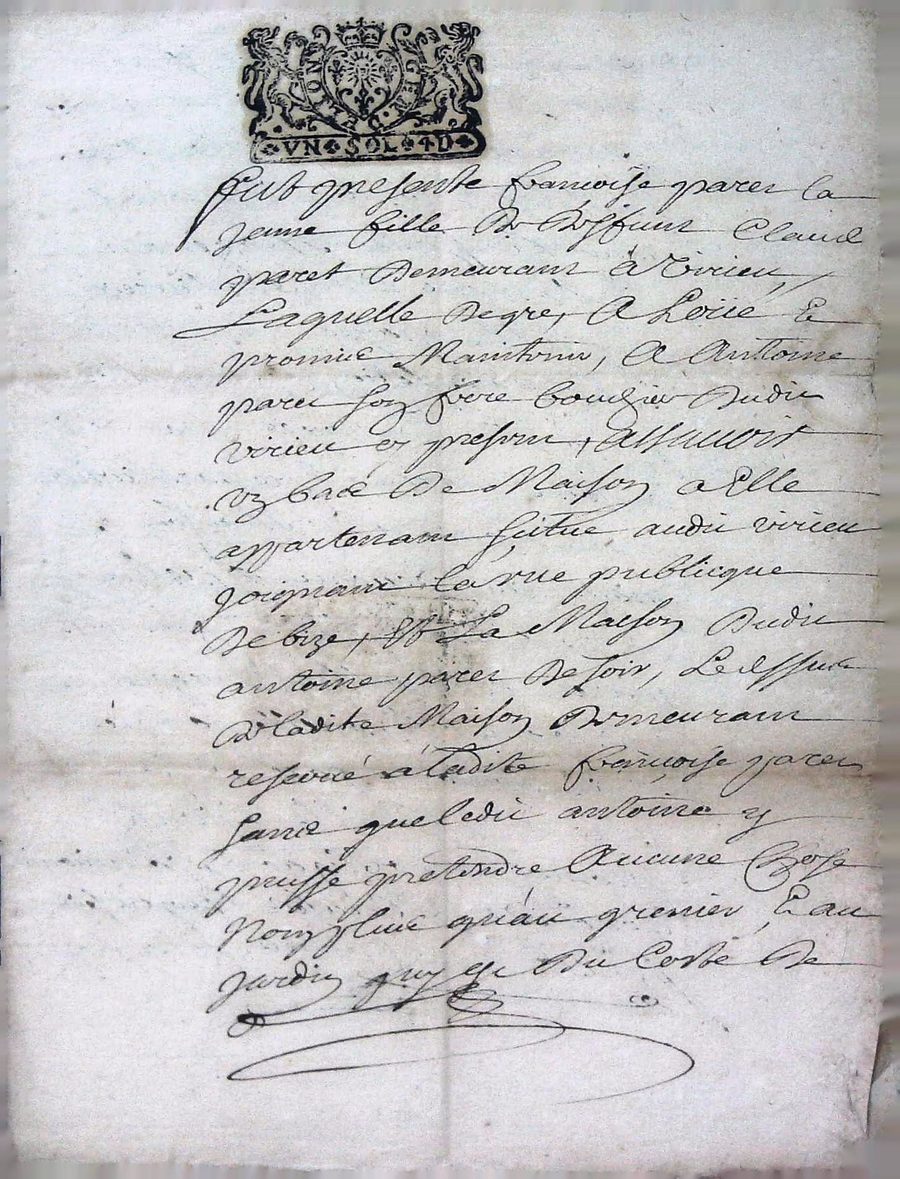 GEN D LYON
VN SOL 4D
Fut presente francoise paret la
jeune fille de deffunt Claude
paret demeurant à Virieu,
Laquelle de gre, a Loüé Et
promis Maintenir, a Antoine
paret son frere boucher dudit
virieu cy present, assauoir
vn bas de Maison a Elle
appartenant situé audit virieu
joignant la rue publicque
de bize, Et La Maison dudit
antoine paret de soir, Le dessus
de ladite Maison demeurant
reserué à ladite francoise paret
sans que ledit antoine y
puisse pretendre aucune chose
Non plus qu'au grenier, Et au
jardin quy est du costé de